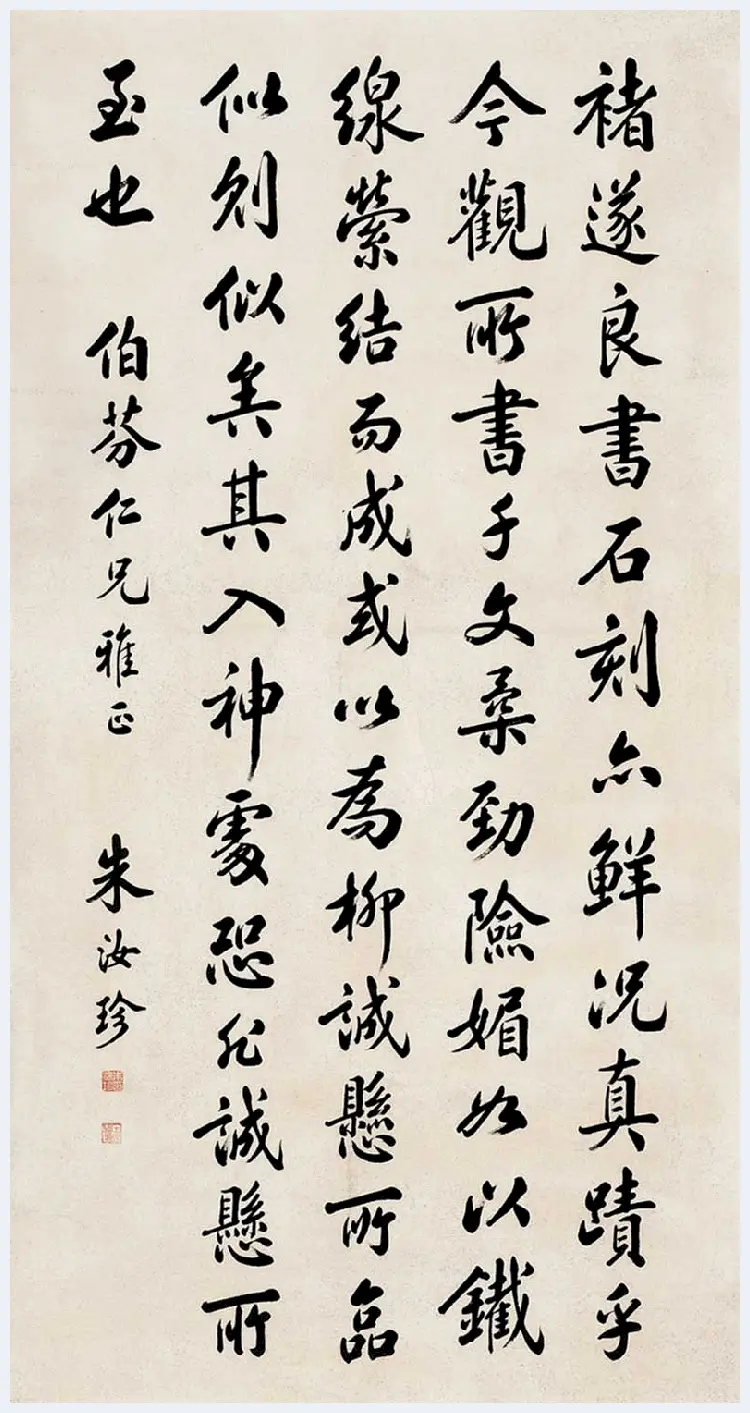 褚遂良書石刻亦鮮況真蹟乎
今觀所書千文柔勁險媚如以鐵
線縈結而成或以為柳誠懸所
似則似矣其入神處恐非誠懸所
至也 伯芬仁兄雅正 朱汝珍